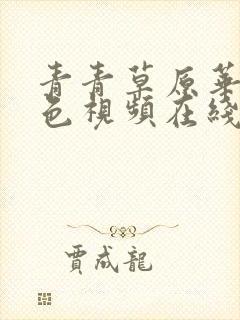 青青草原華
色視頻在綫
賈成龍